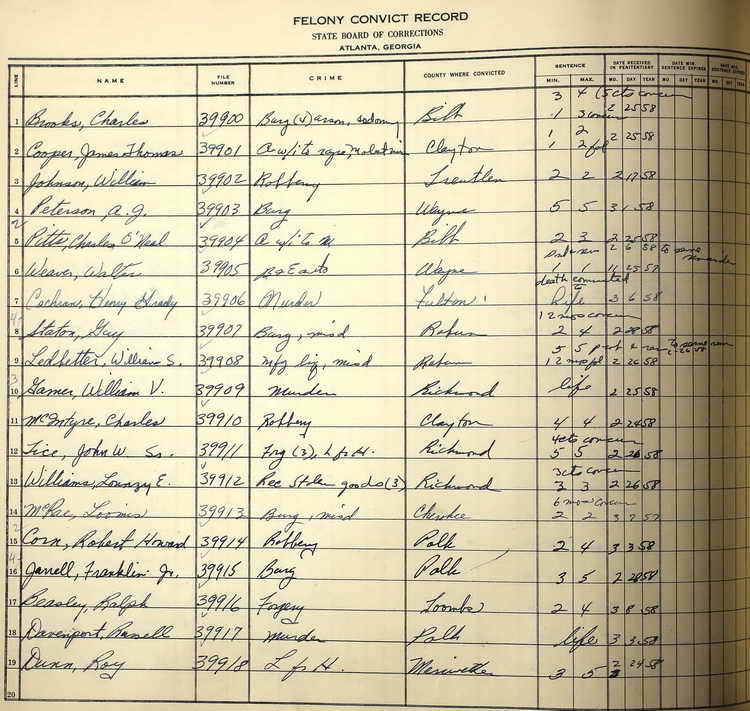 FELONY CONVICT RECORD
STATE BOARD OF CORRECTIONS
ATLANTA, GEORGIA
LINE NAME FILE NUMBER CRIME COUNTY WHERE CONVICTED SENTENCE MIN. MAX. DATE RECEIVED IN PENITENTIARY MO. DAY YEAR DATE MIN. SENTENCE EXPIRES MO. DAY YEAR DATE MAX. SENTENCE EXPIRES MO. DAY YEAR
3 4 (5 cts concur
1 Brooks, Charles 39900 Burg (4) arson, sodomy Bibb 1 3 concur 2 25 58
1 2
2 Cooper, James Thomas 39901 A w/i to rape, Clayton 1 2 2 25 58
3 Johnson, William 39902 Robbery Treutlen 2 2 2 17 58
4 Peterson, A. J. 39903 Burg Wayne 5 5 3 1 58
2
5 Pitts, Charles O'Neal 39904 A w/i to M Bibb 2 3 2 25 58
2 6 58 to same
6 Weaver, Walter 39905 Wayne 1 1 11 25 57
death commuted
to
7 Cochran, Henry Grady 39906 Murder Fulton Life 3 6 58
4 12 mos concur
8 Staton, Guy 39907 Burg, misd Rabun 2 4 2 28 58
5 5 to same
9 Ledbetter, William S. 39908 Mfg liq, misd Rabun 12 mos 2 26 58 2-26-58
3
10 Garner, William V. 39909 Murder Richmond life 2 25 58
11 McIntyre, Charles 39910 Robbery Clayton 4 4 2 24 58
4 cts concur
12 Tice, John W. Sr. 39911 Forg (3), L fr H. Richmond 5 5 2 26 58
3 cts concur
13 Williams, Lounzy E. 39912 Rec Stolen goods (3) Richmond 3 3 2 26 58
6 mos concur
14 McRae, Loomis 39913 Burg, misd Cherokee 2 2 3 7 57
2
15 Corn, Robert Howard 39914 Robbery Polk 2 4 3 3 58
4
16 Jarrell, Franklin Jr. 39915 Burg Polk 3 5 2 28 58
17 Beasley, Ralph 39916 Forgery Toombs 2 4 3 8 58
18 Davenport, Russell 39917 Murder Polk life 3 3 58
19 Dunn, Roy 39918 L fr H. Meriwether 3 5 2 24 58
20